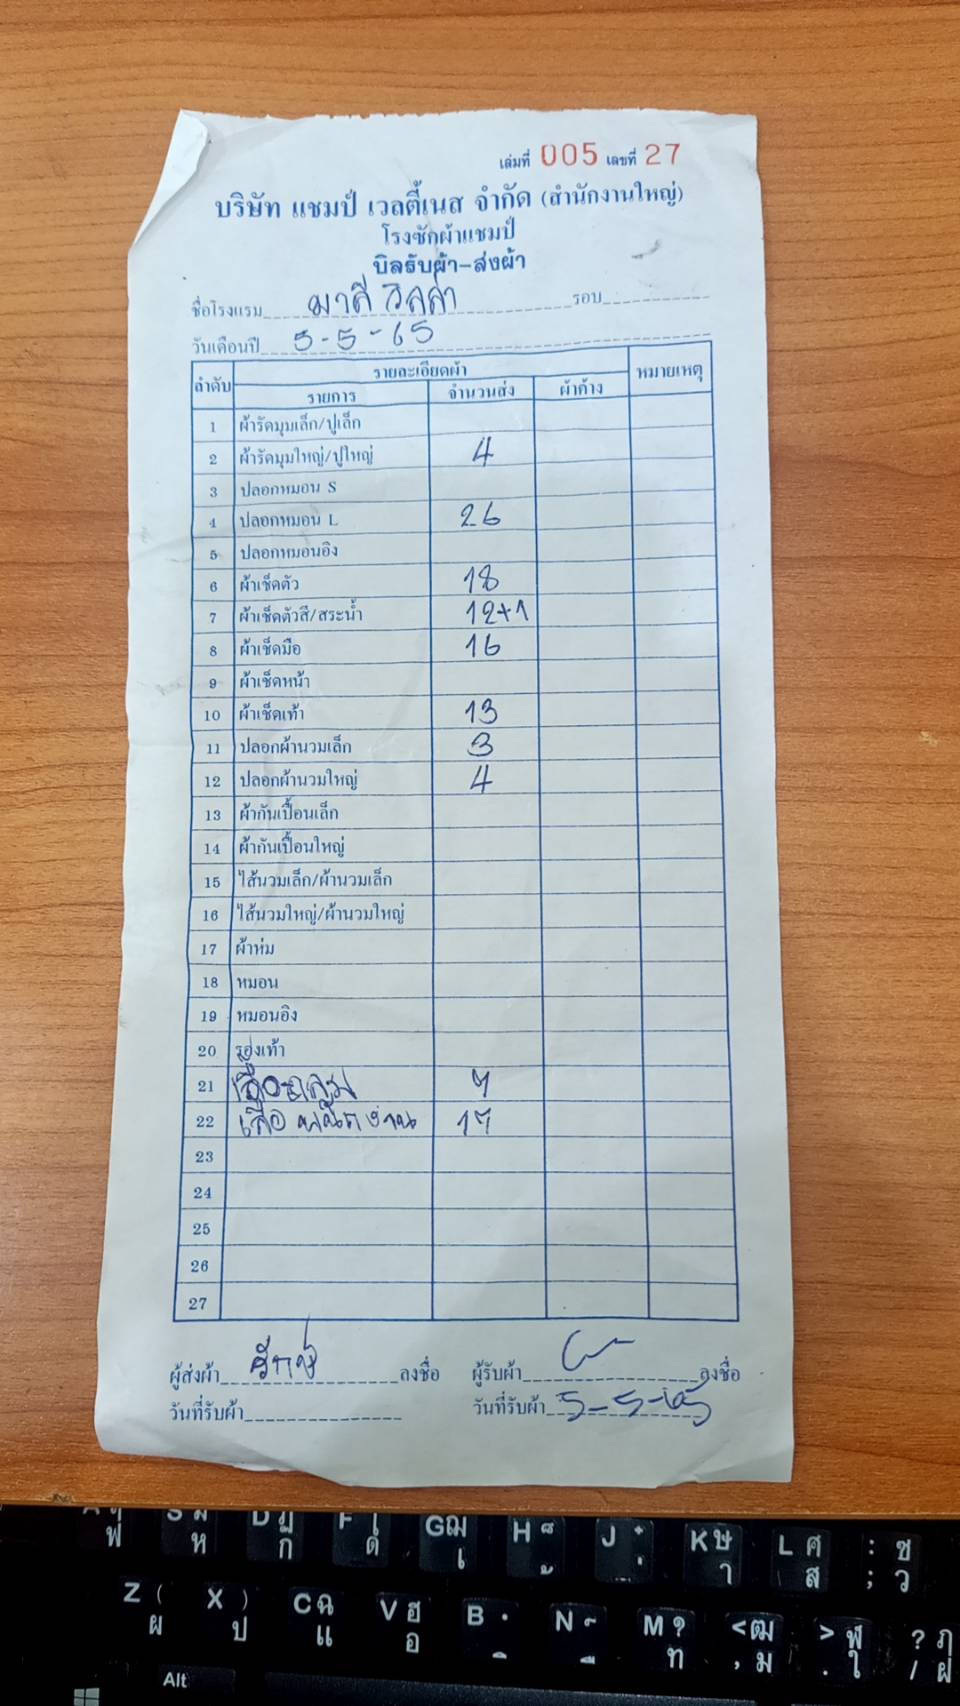 เล่มที่ 005 เลขที่ 27
บริษัท แชมป์ เวลตี้เนส จำกัด (สำนักงานใหญ่)
โรงซักผ้าแชมป์
บิลรับผ้า-ส่งผ้า
ชื่อโรงแรม มาลี วิลล่า รอบ
วันเดือนปี 5-5-65
ลำดับ รายละเอียดผ้า หมายเหตุ
รายการ จำนวนส่ง ผ้าค้าง
1 ผ้ารัดมุมเล็ก/ปูเล็ก
2 ผ้ารัดมุมใหญ่/ปูใหญ่ 4
3 ปลอกหมอน S
4 ปลอกหมอน L 26
5 ปลอกหมอนอิง
6 ผ้าเช็ดตัว 18
7 ผ้าเช็ดตัวสี/สระน้ำ 12+1
8 ผ้าเช็ดมือ 16
9 ผ้าเช็ดหน้า
10 ผ้าเช็ดเท้า 13
11 ปลอกผ้านวมเล็ก 3
12 ปลอกผ้านวมใหญ่ 4
13 ผ้ากันเปื้อนเล็ก
14 ผ้ากันเปื้อนใหญ่
15 ไส้นวมเล็ก/ผ้านวมเล็ก
16 ไส้นวมใหญ่/ผ้านวมใหญ่
17 ผ้าห่ม
18 หมอน
19 หมอนอิง
20 รองเท้า
21 เสื้อคลุม 7
22 เสื้อ พนักงาน 17
23
24
25
26
27
ผู้ส่งผ้า ลงชื่อ ผู้รับผ้า ลงชื่อ
วันที่รับผ้า วันที่รับผ้า 5-5-65
S ม ห D ฏ ก F โ ด G ฌ เ H ็ ้ J ๋ ่ K ษ า L ศ ส : ; ซ ว
Z ( ผ X ) ป C ฉ แ V ฮ อ B ฺ ิ N ์ ื M ? ท < , ฒ ม > . ฬ ใ ? / ฦ ฝ
Alt